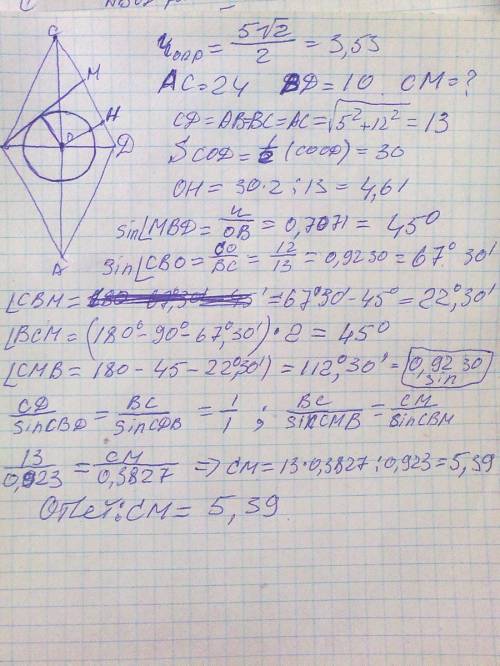 C
M
H
O
D
A
rопр = 5√2/2 = 3,53
AC=24 BD=10. CM=?
CD=AB=BC=AC=√5²+12² = 13
SCOD=½(CO·OD)=30
OH = 30·2:13 = 4,61
sin∠MBD = r/OB = 0,7071 = 45°
sin∠CBO = CO/BC = 12/13 = 0,9230 = 67° 30'
∠CBM = =67°30'-45° = 22°,30'
∠BCM = (180°-90°-67,30')·2 = 45°
∠CMB = 180-45-22°,30') = 112°,30' = 0,9230 sin
CD/sinCBD = BC/sinCDB = 1/1 ; BC/sinCMB = CM/sinCBM
13/0,923 = CM/0,3827 => CM=13·0,3827:0,923=5,39
Ответ: CM = 5,39